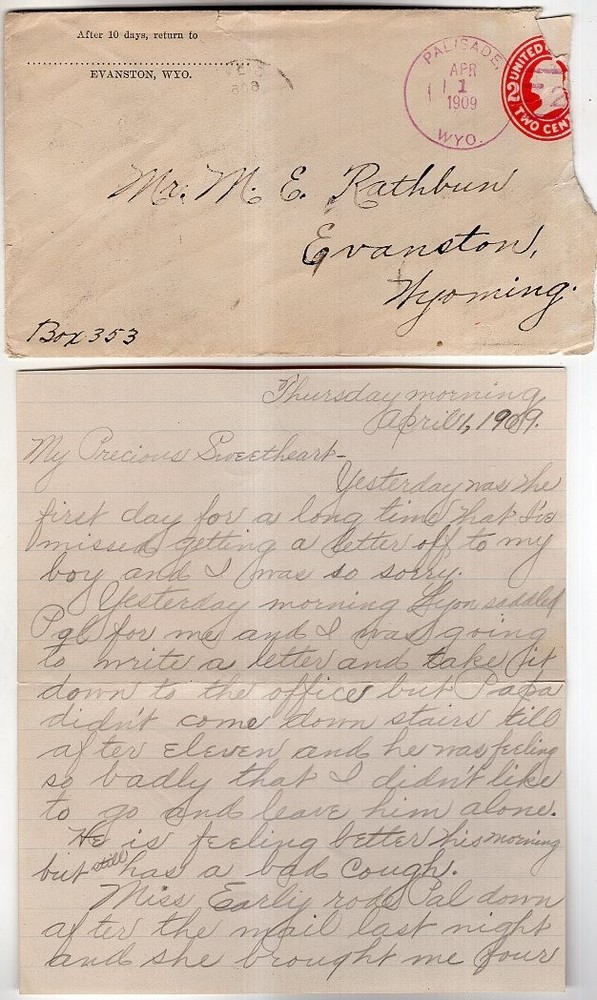 After 10 days, return to
EVANSTON, WYO.
PALISADE,
APR
1
1909
WYO.
UNITED
2
TWO CEN
Mr. M. E. Rathbun
Evanston,
Wyoming.
Box 353
Thursday morning,
April 1, 1909.
My Precious Sweetheart-
Yesterday was the
first day for a long time that I've
missed getting a letter off to my
boy and I was so sorry.
Yesterday morning Lyon saddled
Pal for me and I was going
to write a letter and take it
down to the office but Papa
didn't come down stairs till
after eleven and he was feeling
so badly that I didn't like
to go and leave him alone.
He is feeling better this morning
but still has a bad cough.
Miss Early rode Pal down
after the mail last night
and she brought me four